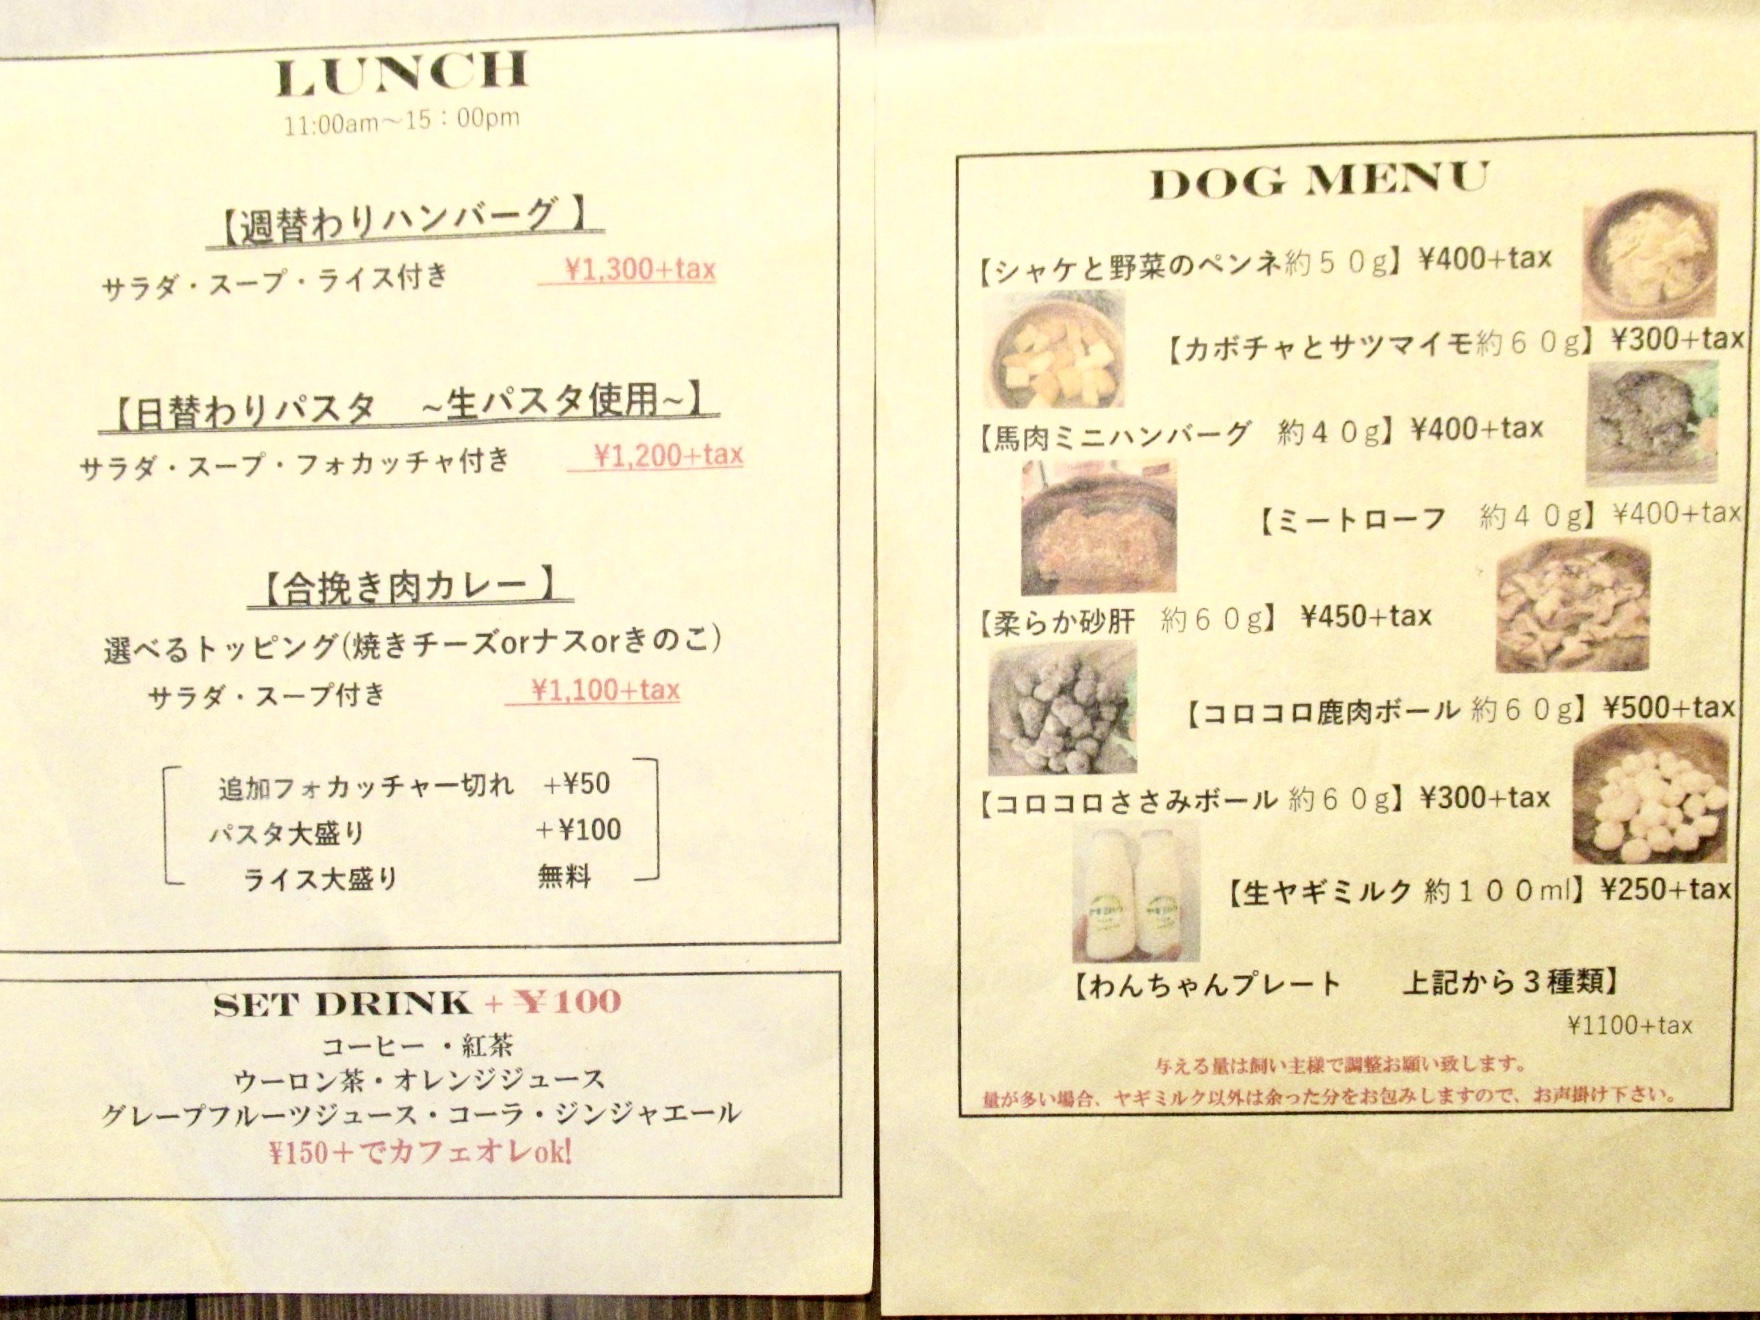 LUNCH
11:00am～15：00pm
【週替わりハンバーグ 】
サラダ・スープ・ライス付き ¥1,300+tax
【日替わりパスタ ~生パスタ使用~】
サラダ・スープ・フォカッチャ付き ¥1,200+tax
【合挽き肉カレー 】
選べるトッピング(焼きチーズorナスorきのこ)
サラダ・スープ付き ¥1,100+tax
追加フォカッチャー切れ +¥50
パスタ大盛り +¥100
ライス大盛り 無料
SET DRINK + ¥100
コーヒー ・紅茶
ウーロン茶・オレンジジュース
グレープフルーツジュース・コーラ・ジンジャエール
¥150＋でカフェオレok!
DOG MENU
【シャケと野菜のペンネ約５０g】¥400+tax
【カボチャとサツマイモ約６０g】¥300+tax
【馬肉ミニハンバーグ 約４０g】¥400+tax
【ミートローフ 約４０g】¥400+tax
【柔らか砂肝 約６０g】 ¥450+tax
【コロコロ鹿肉ボール 約６０g】¥500+tax
【コロコロささみボール 約６０g】¥300+tax
【生ヤギミルク 約１００ml】¥250+tax
【わんちゃんプレート 上記から３種類】
¥1100+tax
与える量は飼い主様で調整お願い致します。
量が多い場合、ヤギミルク以外は余った分をお包みしますので、お声掛け下さい。